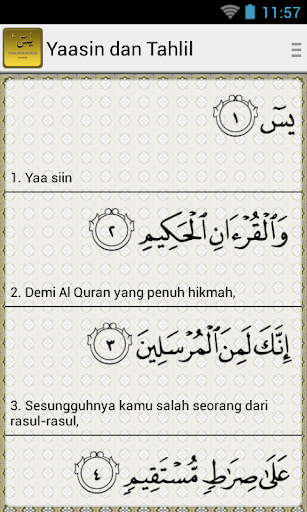 11:57
Yaasin dan Tahlil
يسٓ ١
1. Yaa siin
وَٱلۡقُرۡءَانِ ٱلۡحَكِيمِ ٢
2. Demi Al Quran yang penuh hikmah,
إِنَّكَ لَمِنَ ٱلۡمُرۡسَلِينَ ٣
3. Sesungguhnya kamu salah seorang dari
rasul-rasul,
عَلَىٰ صِرَٰطٖ مُّسۡتَقِيمٖ ٤